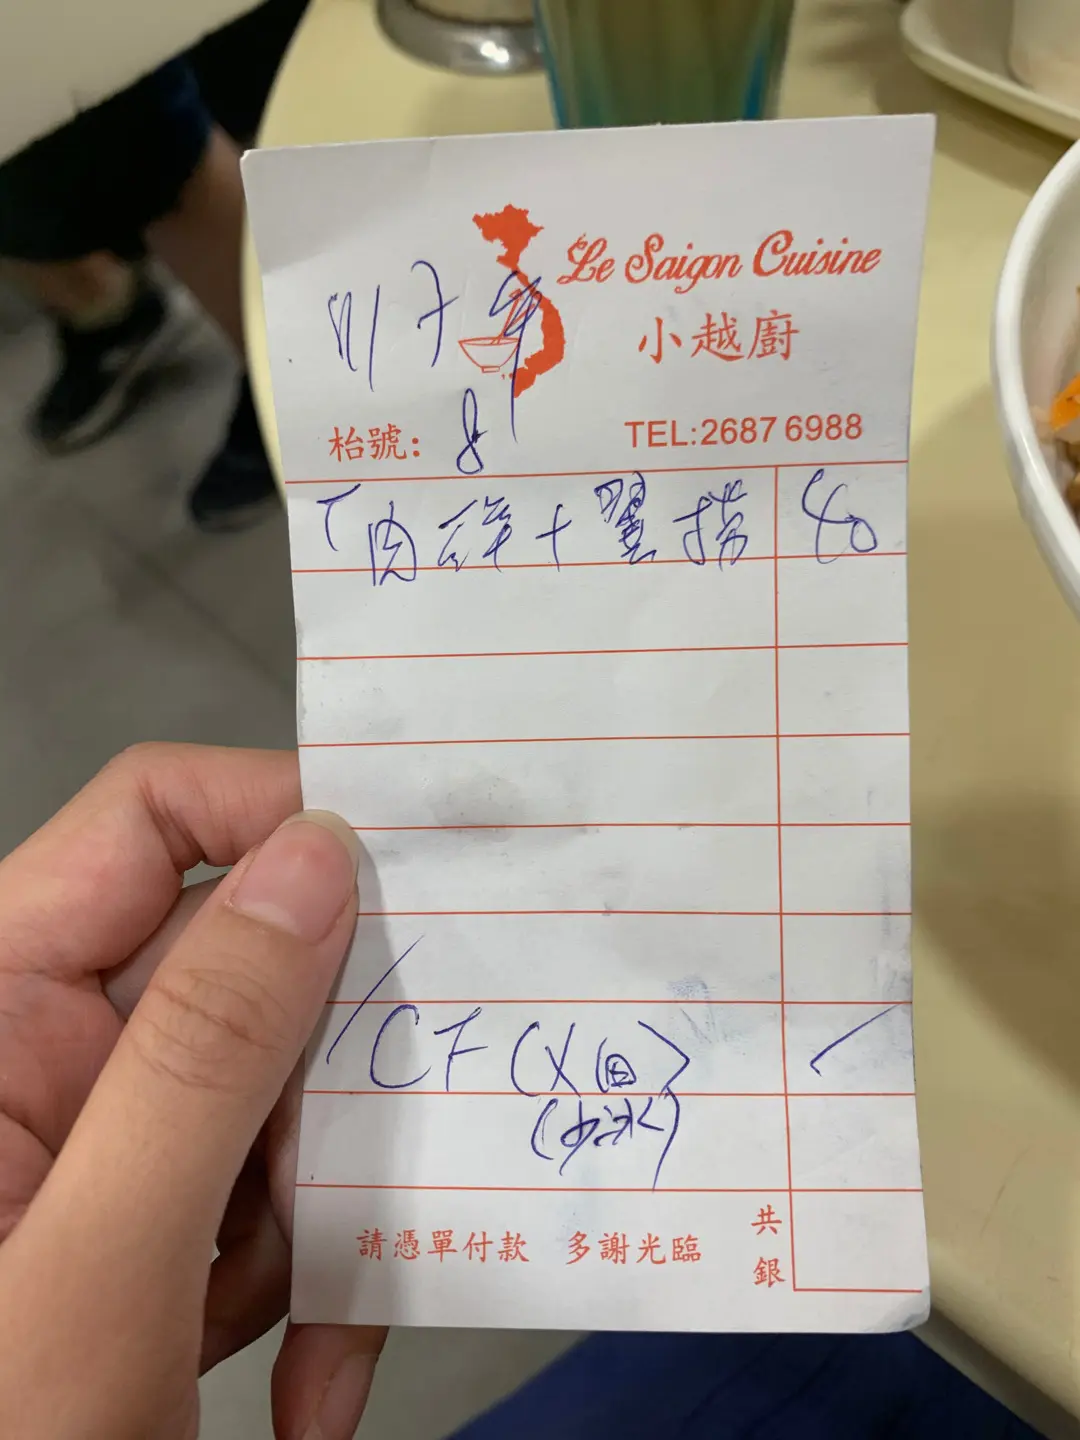 Le Saigon Cuisine
小越廚
枱號: 8
TEL:2687 6988
肉 + 翼 撈 40
CF (X 田)
(少冰)
請憑單付款 多謝光臨 共銀